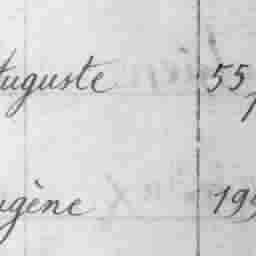 Auguste 55
ugène 195